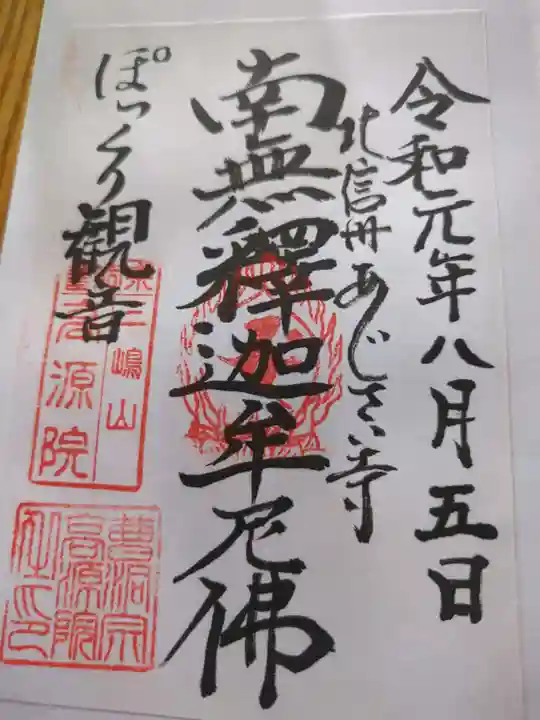 令和元年八月五日
北信州あじさい寺
南無釋迦牟尼佛
ぽっくり観音
嶋山
高源院
曹洞宗
高源院